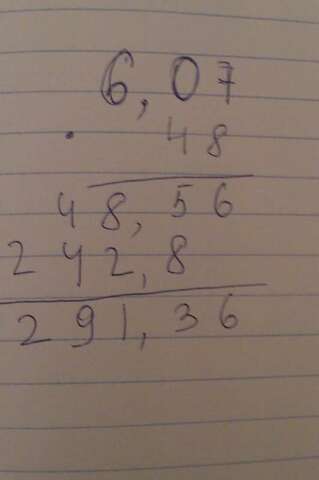 6,07
· 48
48,56
242,8
291,36